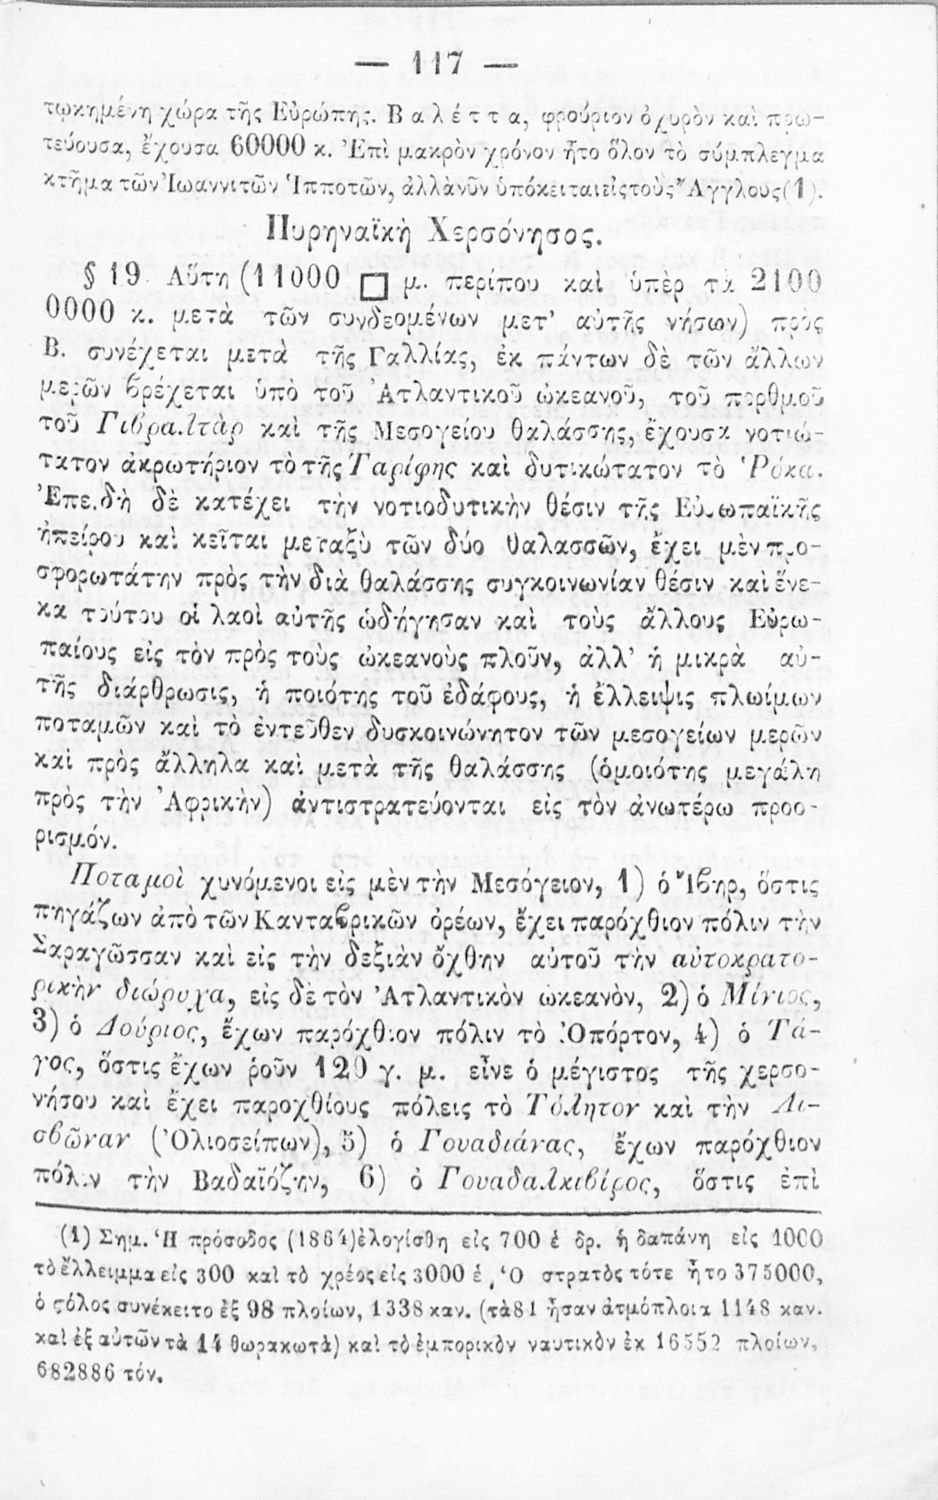 — 117 —
τῳκημένη χώρα τῆς Εὐρώπης. Βαλέττα, φρούριον ὀχυρὸν καὶ πρω-
τεύουσα, ἔχουσα 60000 κ. Ἐπὶ μακρὸν χρόνον ἦτο ὅλον τὸ σύμπλεγμα
κτῆμα τῶν Ἰωαννιτῶν Ἱπποτῶν, ἀλλὰ νῦν ὑπόκειται εἰς τοὺς Ἄγγλους(1).
Πυρηναϊκὴ Χερσόνησος.
§ 19 Αὕτη (11000 □ μ. περίπου καὶ ὑπὲρ τὰ 2100
0000 κ. μετὰ τῶν συνδεομένων μετ' αὐτῆς νήσων) πρὸς
Β. συνέχεται μετὰ τῆς Γαλλίας, ἐκ πάντων δὲ τῶν ἄλλων
μερῶν βρέχεται ὑπὸ τοῦ Ἀτλαντικοῦ ὠκεανοῦ, τοῦ πορθμοῦ
τοῦ Γιβραλτὰρ καὶ τῆς Μεσογείου θαλάσσης, ἔχουσα νοτιώ-
τατον ἀκρωτήριον τὸ τῆς Ταρίφης καὶ δυτικώτατον τὸ Ῥόκα.
Ἐπειδὴ δὲ κατέχει τὴν νοτιοδυτικὴν θέσιν τῆς Εὐρωπαϊκῆς
ἠπείρου καὶ κεῖται μεταξὺ τῶν δύο θαλασσῶν, ἔχει μὲν προ-
σφορωτάτην πρὸς τὴν διὰ θαλάσσης συγκοινωνίαν θέσιν καὶ ἕνε-
κα τούτου οἱ λαοὶ αὐτῆς ὡδήγησαν καὶ τοὺς ἄλλους Εὐρω-
παίους εἰς τὸν πρὸς τοὺς ὠκεανοὺς πλοῦν, ἀλλ' ἡ μικρὰ αὐ-
τῆς διάρθρωσις, ἡ ποιότης τοῦ ἐδάφους, ἡ ἔλλειψις πλωίμων
ποταμῶν καὶ τὸ ἐντεῦθεν δυσκοινώνητον τῶν μεσογείων μερῶν
καὶ πρὸς ἄλληλα καὶ μετὰ τῆς θαλάσσης (ὁμοιότης μεγάλη
πρὸς τὴν Ἀφρικὴν) ἀντιστρατεύονται εἰς τὸν ἀνωτέρω προο-
ρισμόν.
Ποταμοὶ χυνόμενοι εἰς μὲν τὴν Μεσόγειον, 1) ὁ Ἴβηρ, ὅστις
πηγάζων ἀπὸ τῶν Κανταβρικῶν ὀρέων, ἔχει παρόχθιον πόλιν τὴν
Σαραγῶσσαν καὶ εἰς τὴν δεξιὰν ὄχθην αὐτοῦ τὴν αὐτοκρατο-
ρικὴν διώρυχα, εἰς δὲ τὸν Ἀτλαντικὸν ὠκεανὸν, 2) ὁ Μίνιος,
3) ὁ Δούριος, ἔχων παρόχθιον πόλιν τὸ Ὀπόρτον, 4) ὁ Τά-
γος, ὅστις ἔχων ῥοῦν 120 γ. μ. εἶνε ὁ μέγιστος τῆς χερσο-
νήσου καὶ ἔχει παροχθίους πόλεις τὸ Τόλητον καὶ τὴν Λι-
σβῶναν (Ὀλιοσείπων), 5) ὁ Γουαδιάνας, ἔχων παρόχθιον
πόλιν τὴν Βαδαϊόζην, 6) ὁ Γουαδαλκιβίρος, ὅστις ἐπὶ
(1) Σημ. Ἡ πρόσοδος (1864) ἐλογίσθη εἰς 700 ἑ δρ. ἡ δαπάνη εἰς 1000
τὸ ἔλλειμμα εἰς 300 καὶ τὸ χρέος εἰς 3000 ἑ. Ὁ στρατὸς τότε ἦτο 375000,
ὁ στόλος συνέκειτο ἐξ 98 πλοίων, 1338 καν. (τὰ 81 ἦσαν ἀτμόπλοια 1148 καν.
καὶ ἐξ αὐτῶν τὰ 14 θωρακωτὰ) καὶ τὸ ἐμπορικὸν ναυτικὸν ἐκ 16552 πλοίων,
682886 τόν.